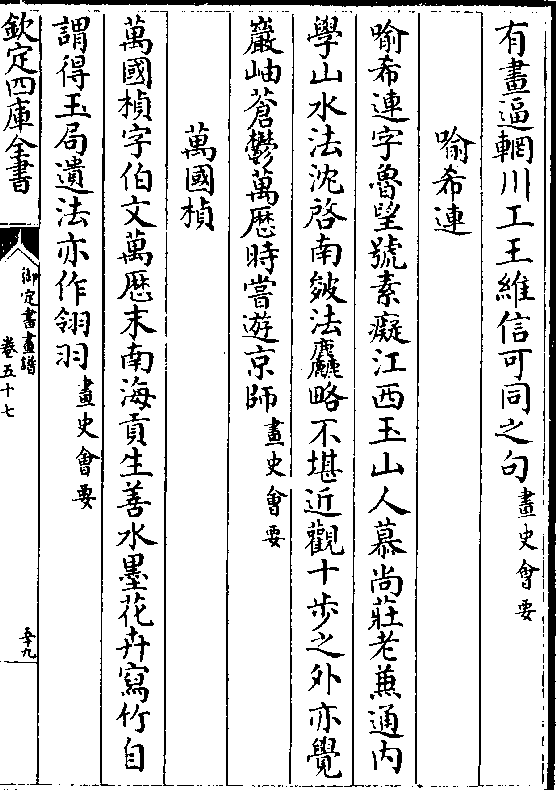 有畫逼輞川工王維信可同之句畫史會要
喻希連
喻希連字魯望號素癡江西玉山人慕尚莊老兼通内
學山水法沈啓南皴法麤略不堪近觀十步之外亦覺
巖岫蒼鬱萬厯時嘗遊京師畫史會要
萬國楨
萬國楨字伯文萬厯末南海貢生善水墨花卉寫竹自
謂得玉局遺法亦作翎羽畫史會要
欽定四庫全書
御定書畫譜
卷五十七
五十九